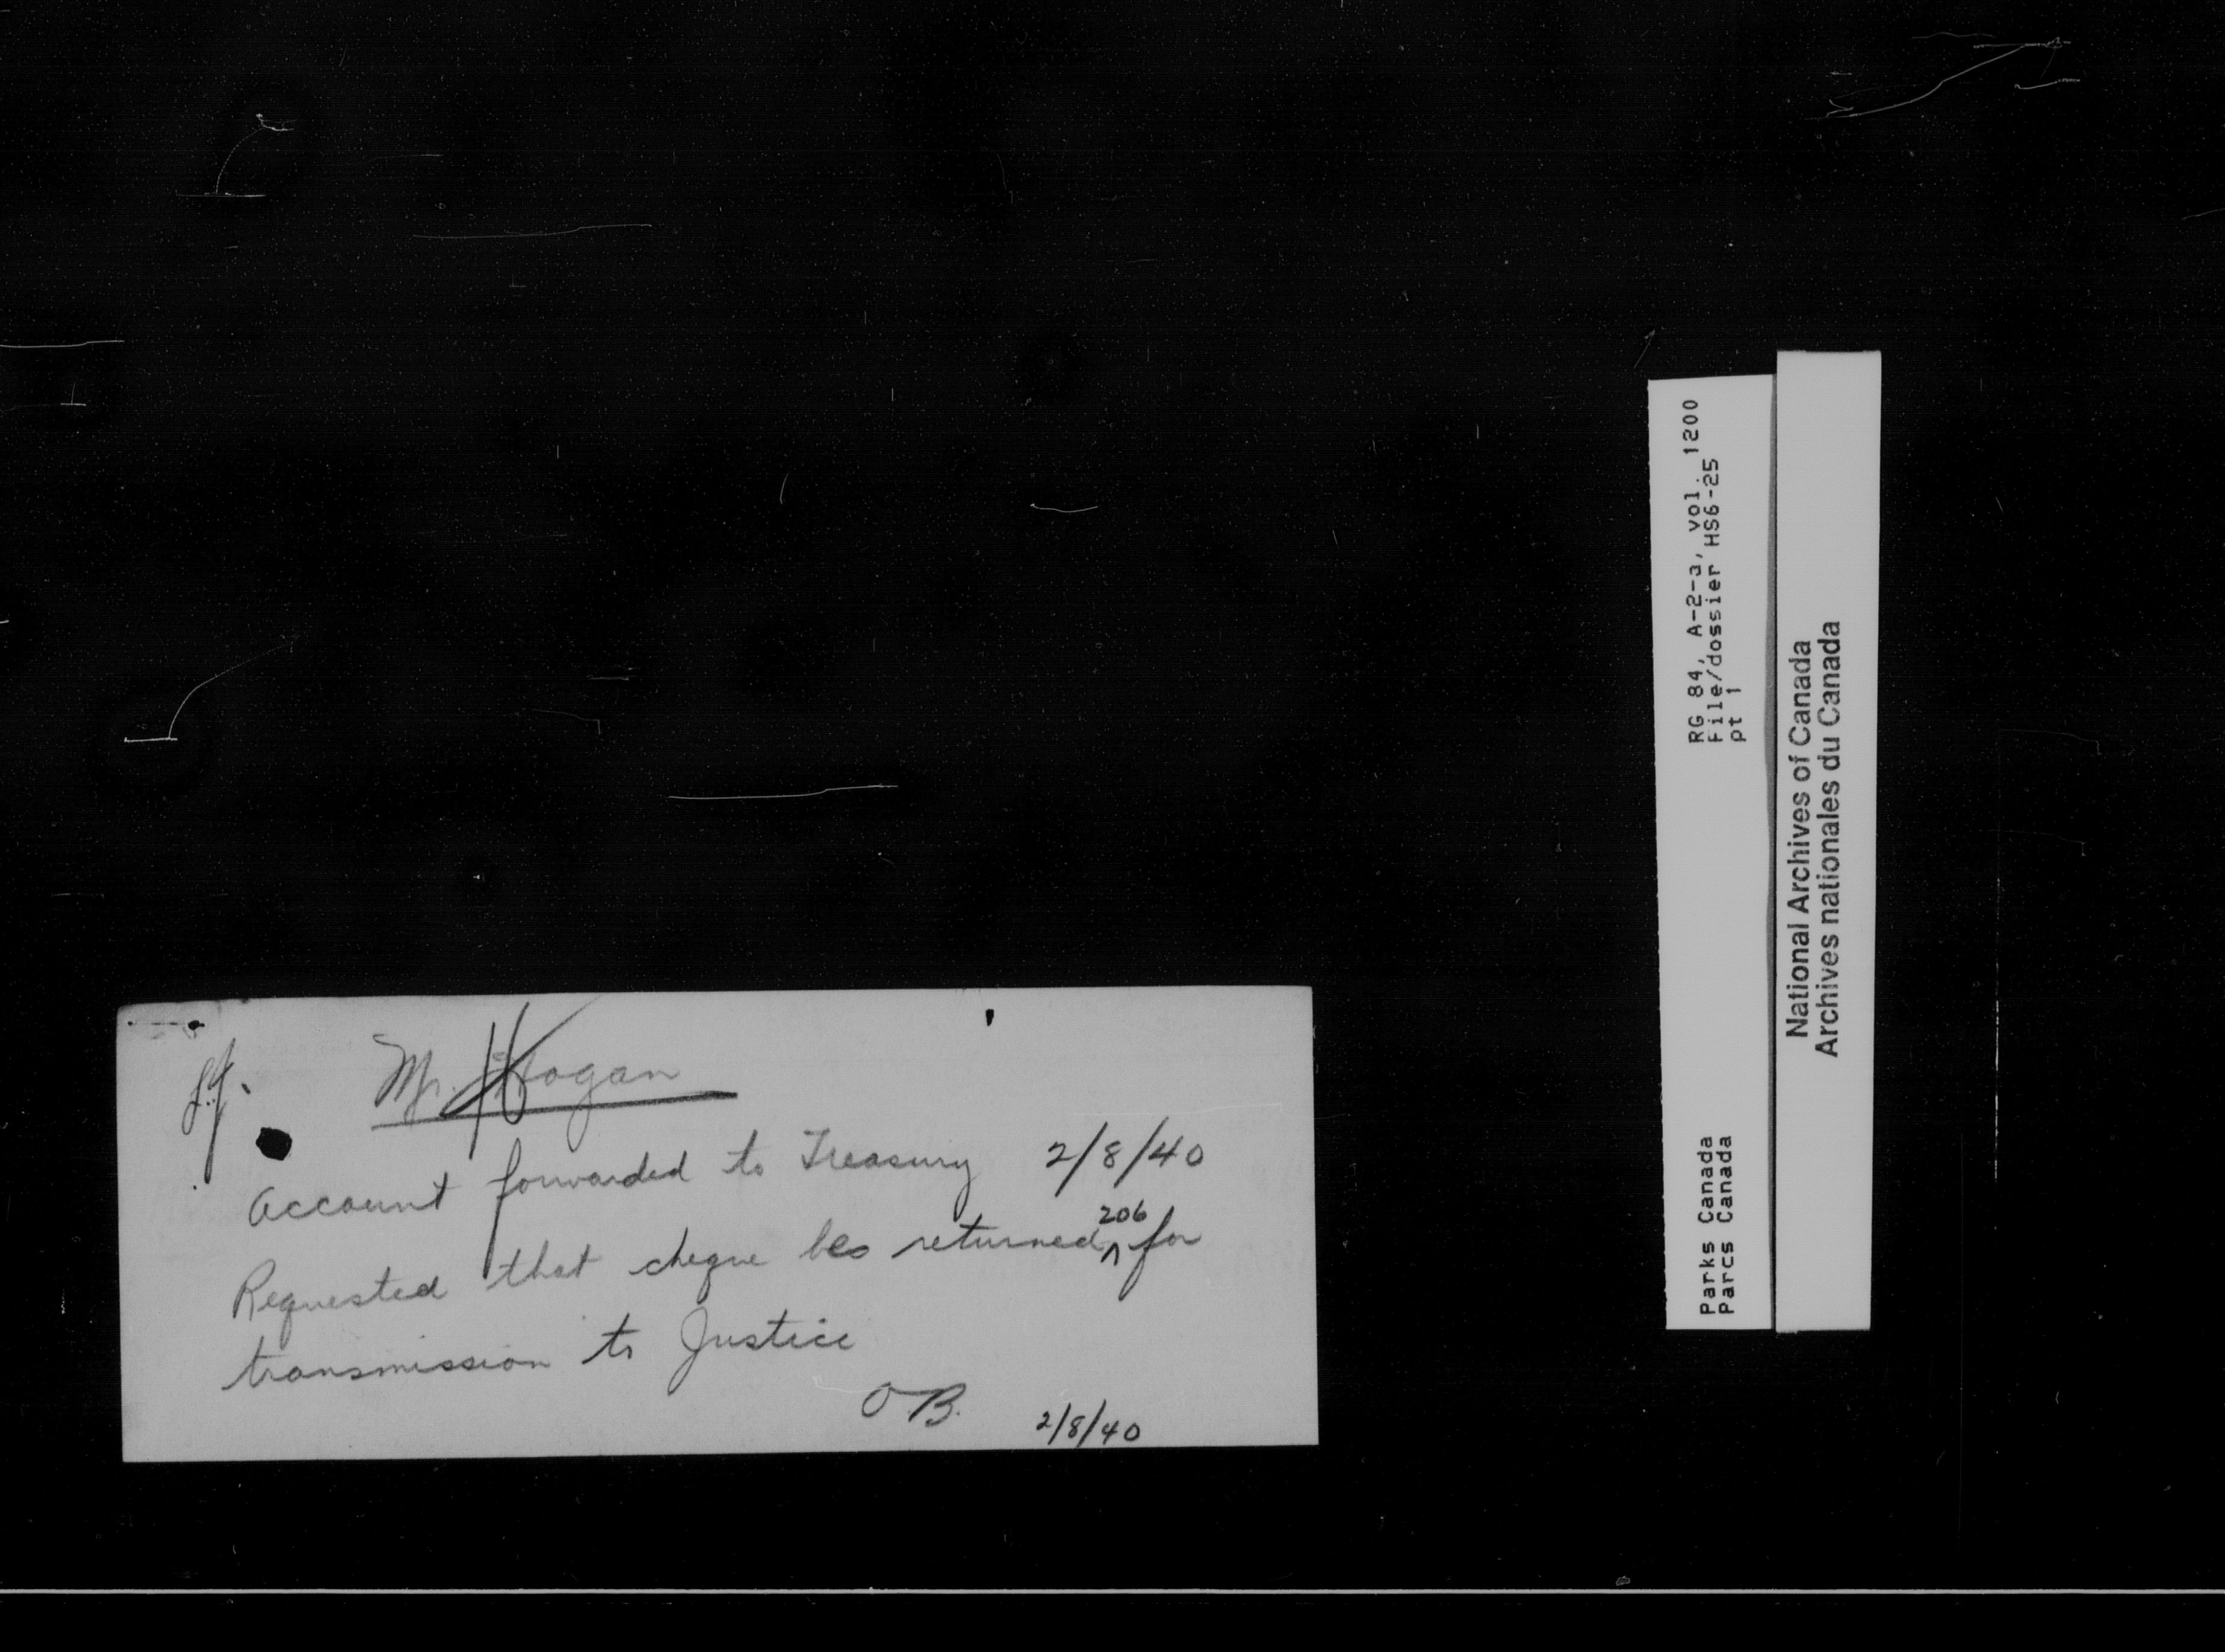 Mr. Hogan
Account forwarded to Treasury 2/8/40
Requested that cheque be returned 206 for
transmission to Justice
O.B. 2/8/40
RG 84, A-2-a, vol. 1200
File/dossier HS6-25
pt 1
Parks Canada
Parcs Canada
National Archives of Canada
Archives nationales du Canada